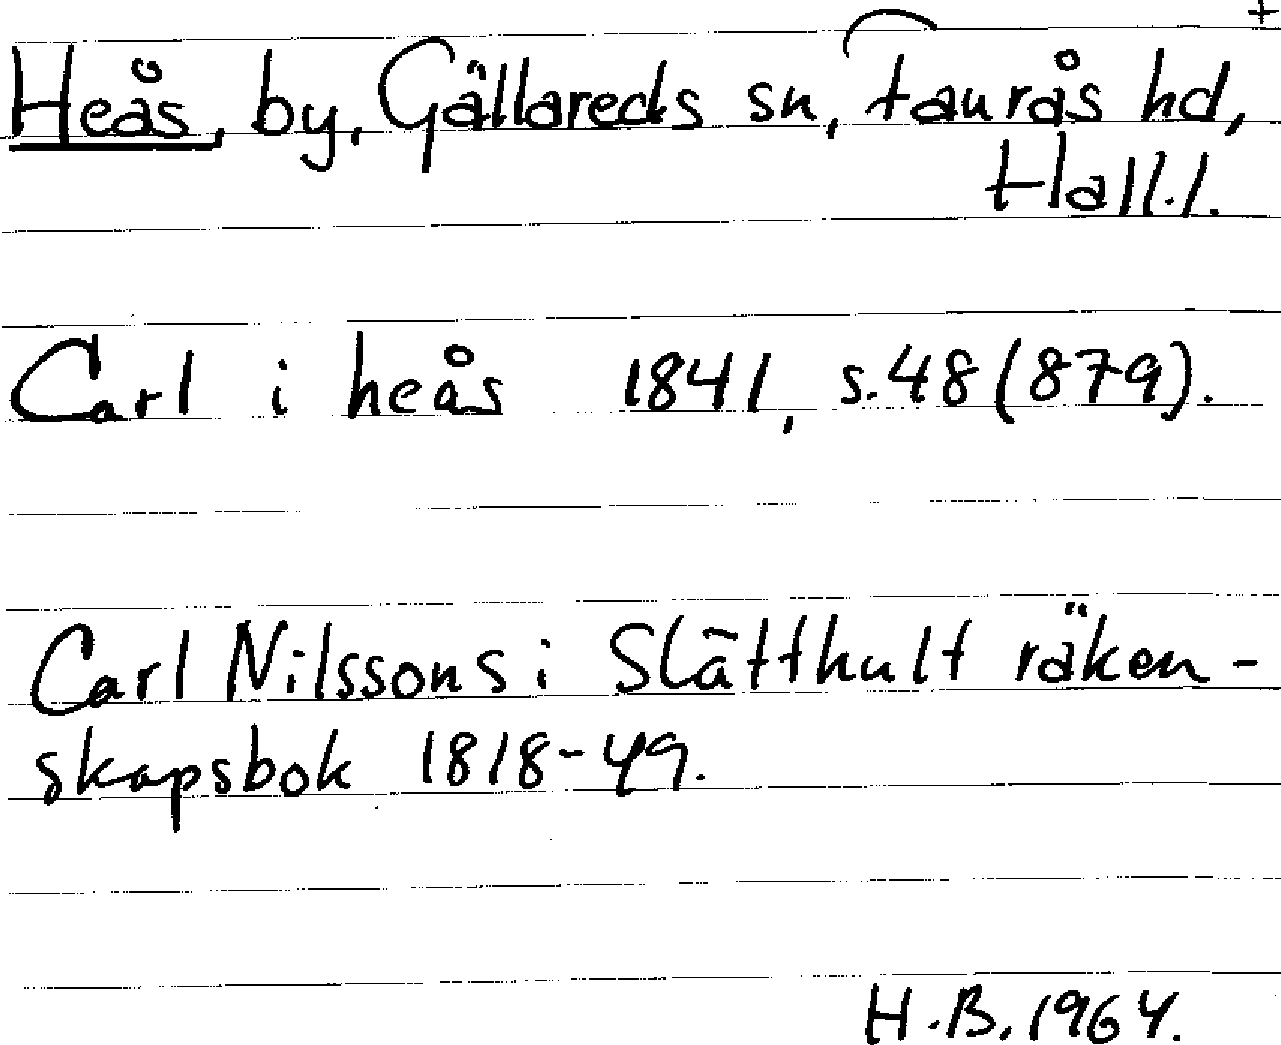 +
Heås, by, Gällareds sn, Faurås hd,
Hall.l.
Carl i heås 1841, s.48 (879).
Carl Nilssons i Slätthult räken-
skapsbok 1818-49.
H.B. 1964.